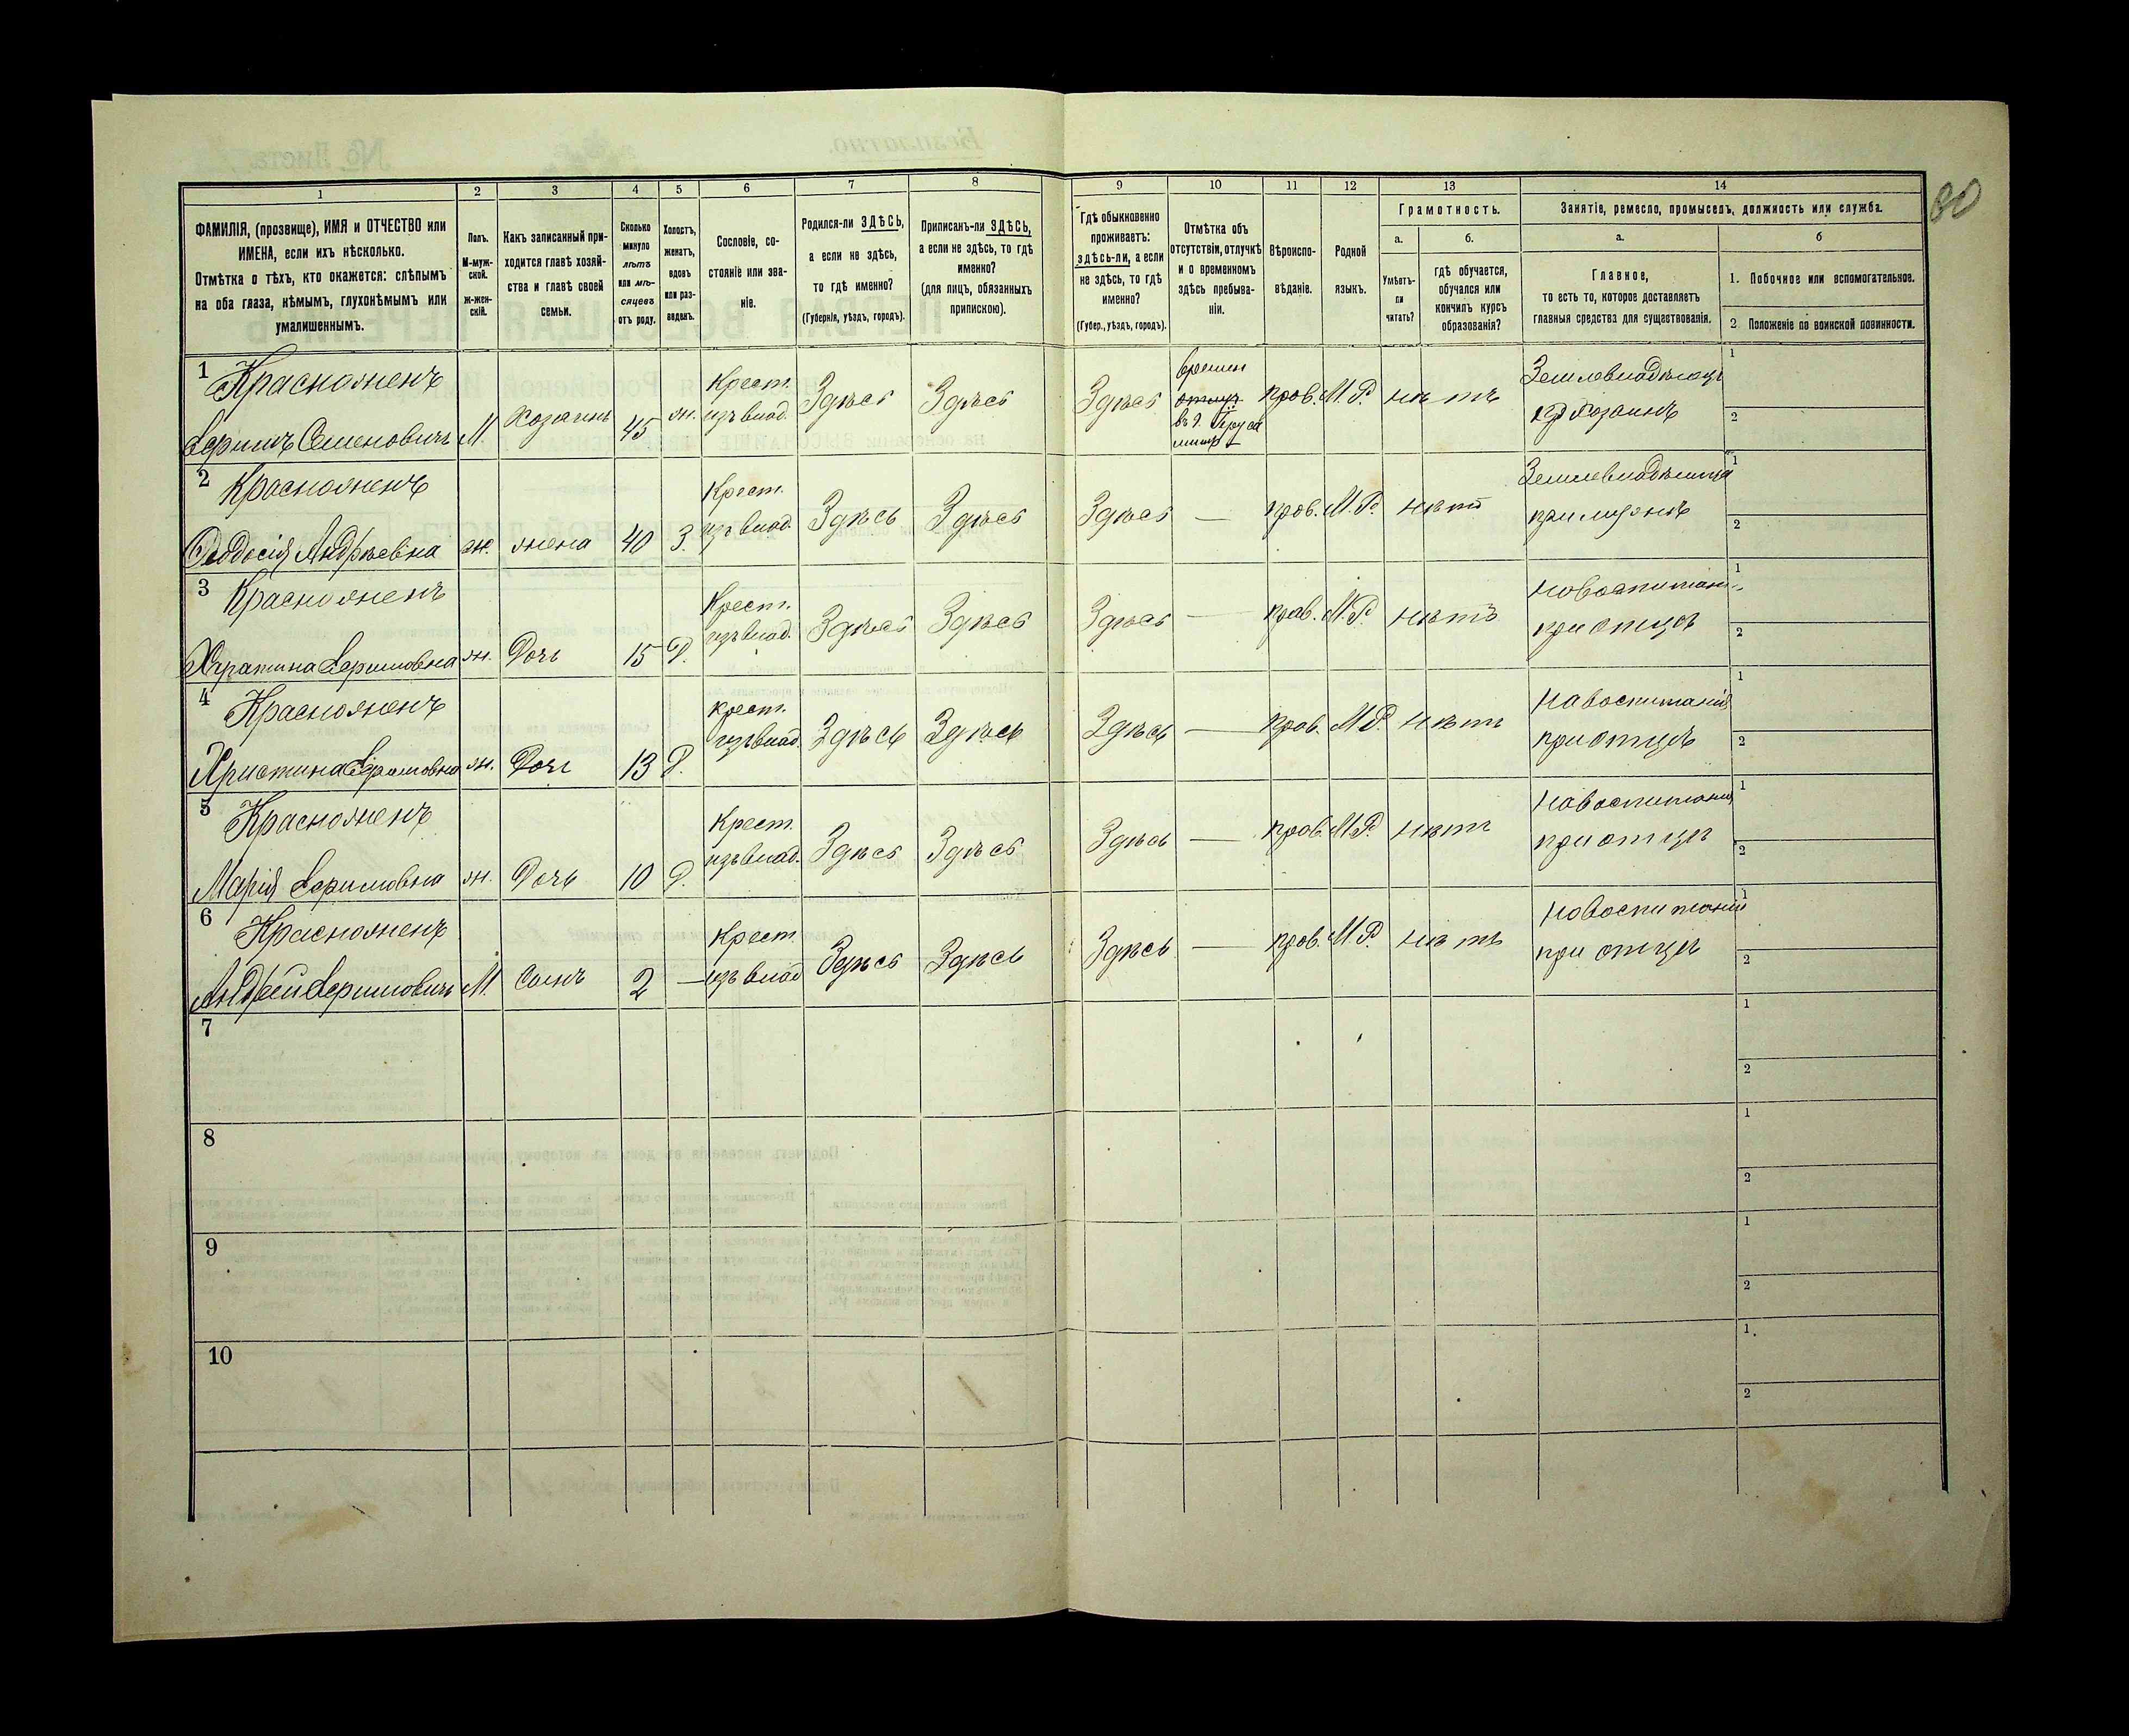 80
1
2
3
4
5
6
7
8
9
10
11
12
13
14
ФАМИЛІЯ, (прозвище), ИМЯ и ОТЧЕСТВО или
ИМЕНА, если ихъ нѣсколько.
Отмѣтка о тѣхъ, кто окажется: слѣпымъ
на оба глаза, нѣмымъ, глухонѣмымъ или
умалишеннымъ.
Полъ.
М-муж-
ской.
ж-жен-
скій.
Какъ записанный при-
ходится главѣ хозяй-
ства и главѣ своей
семьи.
Сколько
минуло
лѣтъ
или мѣ-
сяцевъ
отъ роду.
Холостъ,
женатъ,
вдовъ
или раз-
веденъ.
Сословіе, со-
стояніе или зва-
ніе.
Родился-ли ЗДѢСЬ,
а если не здѣсь,
то гдѣ именно?
(Губернія, уѣздъ, городъ).
Приписанъ-ли ЗДѢСЬ,
а если не здѣсь, то гдѣ
именно?
(для лицъ, обязанныхъ
припискою).
Гдѣ обыкновенно
проживаетъ:
здѣсь-ли, а если
не здѣсь, то гдѣ
именно?
(Губер., уѣздъ, городъ).
Отмѣтка объ
отсутствіи, отлучкѣ
и о временномъ
здѣсь пребыва-
ніи.
Вѣроиспо-
вѣданіе.
Родной
языкъ.
Грамотность.
а.
Умѣетъ-
ли
читать?
б.
гдѣ обучается,
обучался или
кончилъ курсъ
образованія?
Занятіе, ремесло, промыселъ, должность или служба.
а.
Главное,
то есть то, которое доставляетъ
главныя средства для существованія.
б
1. Побочное или вспомогательное.
2. Положеніе по воинской повинности.
1 Красножонъ
Сершъ Семеновичъ М Хозаинъ 45 ж. Крест. изъ влад. Здѣсь Здѣсь Здѣсь времен отлуч. въ г. прав. М.Р. нѣтъ Землевладѣлецъ хозаинъ 1 2
2 Красножонъ
Ѳеодосія Андрѣевна ж. жена 40 З. Крест. изъ влад. Здѣсь Здѣсь Здѣсь — прав. М.Р. нѣтъ Землевладѣлица при мужѣ 1 2
3 Красножонъ
ж. Дочь 15 Д. Крест. изъ влад. Здѣсь Здѣсь Здѣсь — прав. М.Р. нѣтъ при отцѣ 1 2
4 Красножонъ
Христина ж. Дочь 13 Д. крест. изъ влад. Здѣсь Здѣсь Здѣсь — прав. М.Р. нѣтъ На воспитаніи при отцѣ 1 2
5 Красножонъ
Марія ж. Дочь 10 Д. Крест. изъ влад. Здѣсь Здѣсь Здѣсь — прав. М.Р. нѣтъ На воспитаніи при отцѣ 1 2
6 Красножонъ
Андрей М. Сынъ 2 — Крест. изъ влад Здѣсь Здѣсь Здѣсь — прав. М.Р. нѣтъ На воспитаніи при отцѣ 1 2
7 1 2
8 1 2
9 1 2
10 1. 2